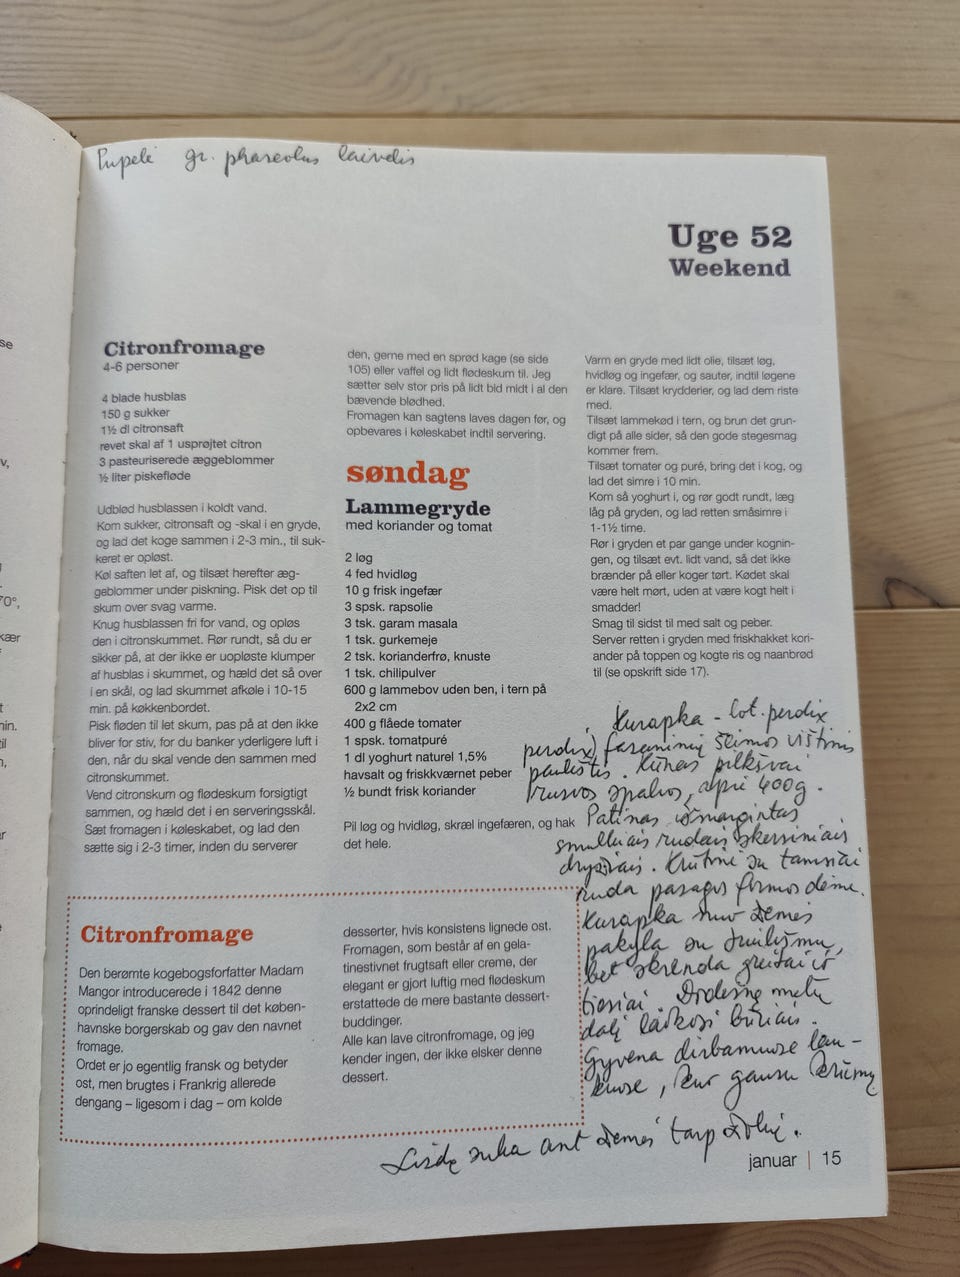 Pupelė gr. phaseolus laivelis
Uge 52
Weekend
Citronfromage
4-6 personer
4 blade husblas
150 g sukker
1½ dl citronsaft
revet skal af 1 usprøjtet citron
3 pasteuriserede æggeblommer
½ liter piskefløde
Udblød husblassen i koldt vand.
Kom sukker, citronsaft og -skal i en gryde,
og lad det koge sammen i 2-3 min., til suk-
keret er opløst.
Køl saften let af, og tilsæt herefter æg-
geblommer under piskning. Pisk det op til
skum over svag varme.
Knug husblassen fri for vand, og opløs
den i citronskummet. Rør rundt, så du er
sikker på, at der ikke er uopløste klumper
af husblas i skummet, og hæld det så over
i en skål, og lad skummet afkøle i 10-15
min. på køkkenbordet.
Pisk fløden til let skum, pas på at den ikke
bliver for stiv, for du banker yderligere luft i
den, når du skal vende den sammen med
citronskummet.
Vend citronskum og flødeskum forsigtigt
sammen, og hæld det i en serveringsskål.
Sæt fromagen i køleskabet, og lad den
sætte sig i 2-3 timer, inden du serverer
den, gerne med en sprød kage (se side
105) eller vaffel og lidt flødeskum til. Jeg
sætter selv stor pris på lidt bid midt i al den
bævende blødhed.
Fromagen kan sagtens laves dagen før, og
opbevares i køleskabet indtil servering.
søndag
Lammegryde
med koriander og tomat
2 løg
4 fed hvidløg
10 g frisk ingefær
3 spsk. rapsolie
3 tsk. garam masala
1 tsk. gurkemeje
2 tsk. korianderfrø, knuste
1 tsk. chilipulver
600 g lammebov uden ben, i tern på
2x2 cm
400 g flåede tomater
1 spsk. tomatpuré
1 dl yoghurt naturel 1,5%
havsalt og friskkværnet peber
½ bundt frisk koriander
Pil løg og hvidløg, skræl ingefæren, og hak
det hele.
Varm en gryde med lidt olie, tilsæt løg,
hvidløg og ingefær, og sauter, indtil løgene
er klare. Tilsæt krydderier, og lad dem riste
med.
Tilsæt lammekød i tern, og brun det grun-
digt på alle sider, så den gode stegesmag
kommer frem.
Tilsæt tomater og puré, bring det i kog, og
lad det simre i 10 min.
Kom så yoghurt i, og rør godt rundt, læg
låg på gryden, og lad retten småsimre i
1-1½ time.
Rør i gryden et par gange under kognin-
gen, og tilsæt evt. lidt vand, så det ikke
brænder på eller koger tørt. Kødet skal
være helt mørt, uden at være kogt helt i
smadder!
Smag til sidst til med salt og peber.
Server retten i gryden med friskhakket kori-
ander på toppen og kogte ris og naanbrød
til (se opskrift side 17).
Kurapka - lot. perdix
perdix) fazaninių šeimos vištinis
paukštis. Kūnas pilkšvai
rusvos spalvos, apie 400g.
Patinas išmargintas
smulkiais rudais skersiniais
dryžiais. Krūtinė su tamsiai
ruda pasagos formos dėme.
Kurapka nuo žemės
pakyla su triukšmu,
bet skrenda greitai ir
tiesiai. Didesnę metų
dalį laikosi būriais.
Gyvena dirbamuose lau-
kuose, kur gausu krūmų
Lizdą suka ant žemės tarp žolių.
Citronfromage
Den berømte kogebogsforfatter Madam
Mangor introducerede i 1842 denne
oprindeligt franske dessert til det køben-
havnske borgerskab og gav den navnet
fromage.
Ordet er jo egentlig fransk og betyder
ost, men brugtes i Frankrig allerede
dengang – ligesom i dag – om kolde
desserter, hvis konsistens lignede ost.
Fromagen, som består af en gela-
tinestivnet frugtsaft eller creme, der
elegant er gjort luftig med flødeskum
erstattede de mere bastante dessert-
buddinger.
Alle kan lave citronfromage, og jeg
kender ingen, der ikke elsker denne
dessert.
januar | 15